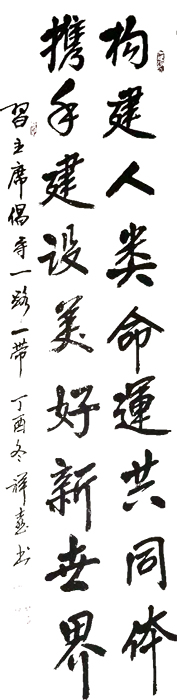 构建人类命運共同体
携手建设美好新世界
習主席倡导一路一带 丁酉冬祥喜书